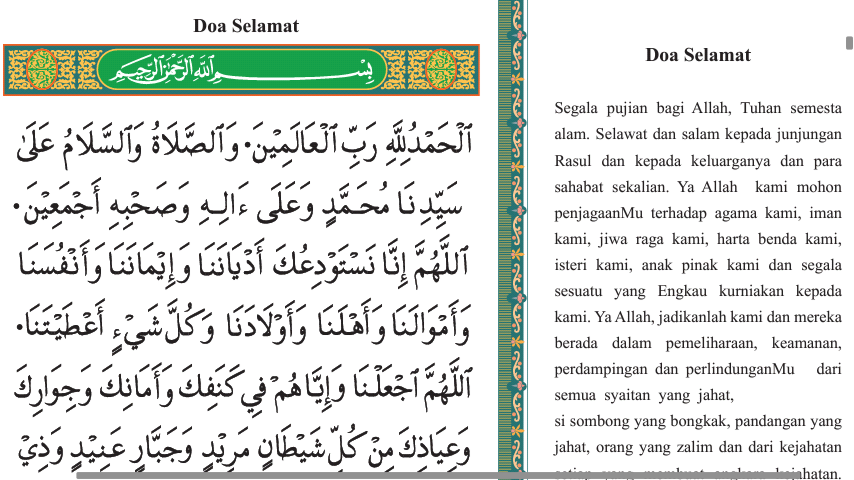 Doa Selamat
بِسْمِ اللَّهِ الرَّحْمَٰنِ الرَّحِيمِ
اَلْحَمْدُلِلَّهِ رَبِّ الْعَالَمِيْنَ. وَالصَّلَاةُ وَالسَّلَامُ عَلَىٰ
سَيِّدِنَا مُحَمَّدٍ وَعَلَى ءَالِهِ وَصَحْبِهِ أَجْمَعِيْنَ.
اَللَّهُمَّ إِنَّا نَسْتَوْدِعُكَ أَدْيَانَنَا وَإِيْمَانَنَا وَأَنْفُسَنَا
وَأَمْوَالَنَا وَأَهْلَنَا وَأَوْلَادَنَا وَكُلَّ شَيْءٍ أَعْطَيْتَنَا.
اَللَّهُمَّ اجْعَلْنَا وَإِيَّاهُمْ فِي كَنَفِكَ وَأَمَانِكَ وَجِوَارِكَ
وَعِيَاذِكَ مِنْ كُلِّ شَيْطَانٍ مَرِيْدٍ وَجَبَّارٍ عَنِيْدٍ وَذِيْ
Doa Selamat
Segala pujian bagi Allah, Tuhan semesta
alam. Selawat dan salam kepada junjungan
Rasul dan kepada keluarganya dan para
sahabat sekalian. Ya Allah kami mohon
penjagaanMu terhadap agama kami, iman
kami, jiwa raga kami, harta benda kami,
isteri kami, anak pinak kami dan segala
sesuatu yang Engkau kurniakan kepada
kami. Ya Allah, jadikanlah kami dan mereka
berada dalam pemeliharaan, keamanan,
perdampingan dan perlindunganMu dari
semua syaitan yang jahat,
si sombong yang bongkak, pandangan yang
jahat, orang yang zalim dan dari kejahatan
setiap yang membuat angkara kejahatan.